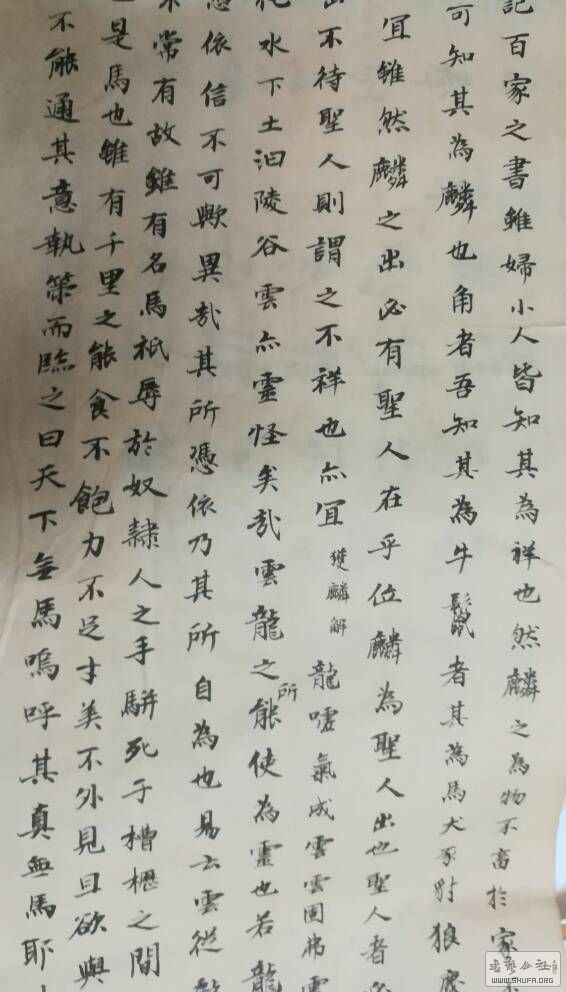 記百家之書雖婦小人皆知其為祥也然麟之為物不畜於家
可知其為麟也角者吾知其為牛鬣者其為馬犬豕豺狼麋
冝雖然麟之出必有聖人在乎位麟為聖人出也聖人者必
出不待聖人則謂之不祥也亦冝 獲麟解 龍噓氣成雲雲固弗靈
水下土汩陵谷雲亦靈怪矣哉雲龍之所能使為靈也若龍
憑依信不可歟異哉其所憑依乃其所自為也易云雲從
不常有故雖有名馬祇辱於奴隸人之手駢死于槽櫪之間
是馬也雖有千里之能食不飽力不足才美不外見且欲與
不能通其意執策而臨之曰天下無馬嗚呼其真無馬耶
書藝公社
WWW.SHUFA.ORG